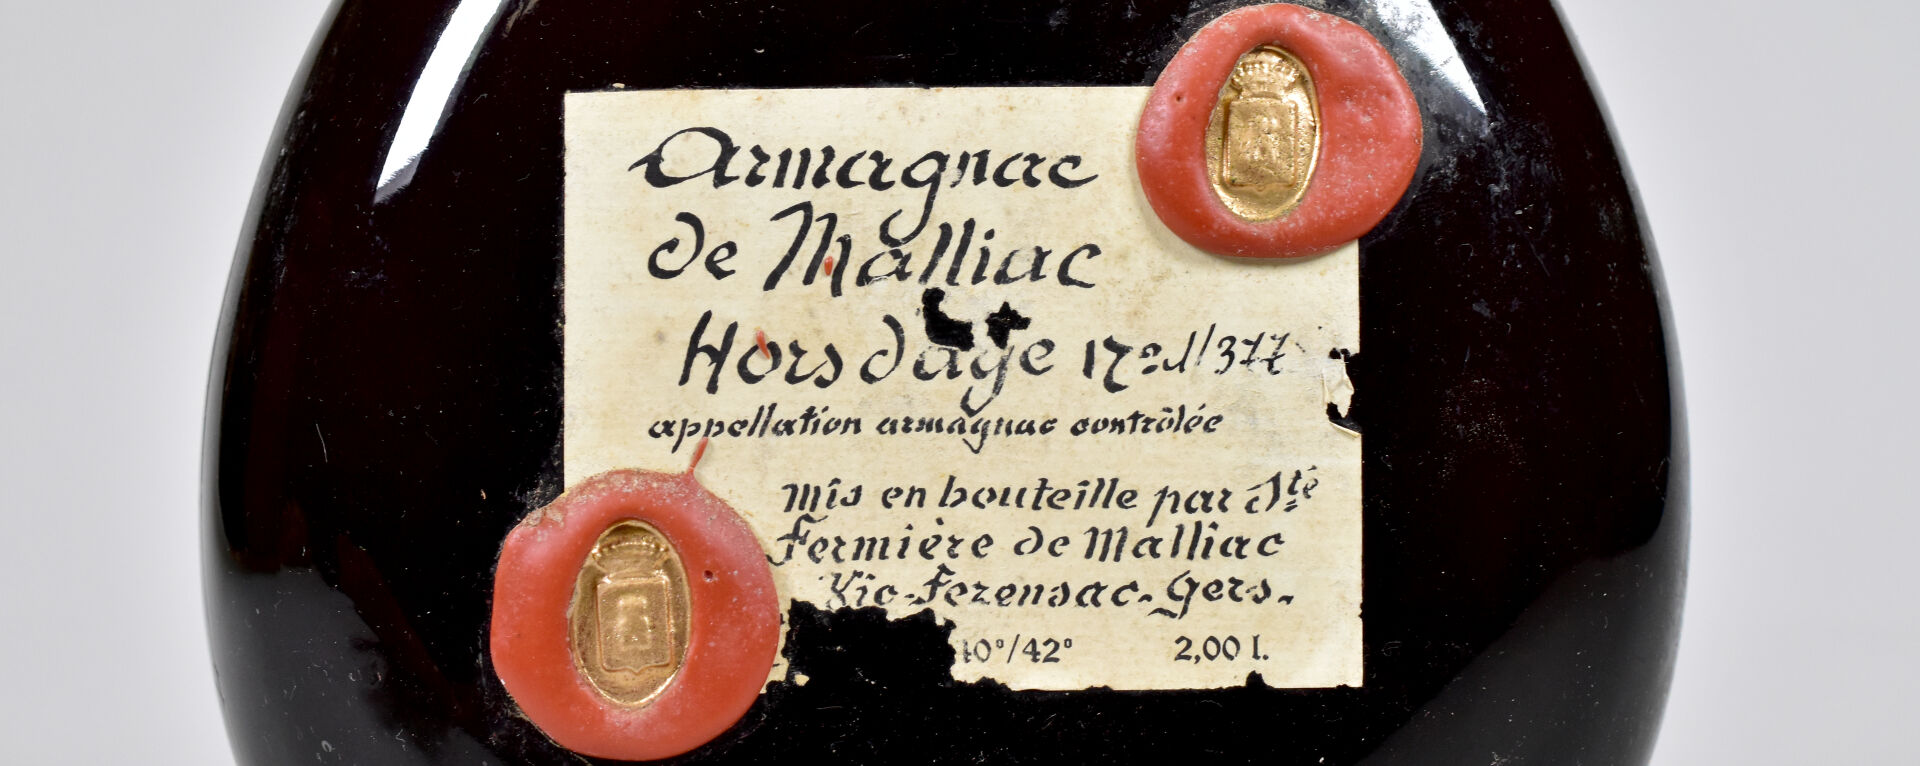 Armagnac
de Malliac
Hors dage
appellation armagnac contrôlée
Mis en bouteille par Sté
Fermière de Malliac
Vic-Fezensac-Gers.
10°/42° 2,00 l.